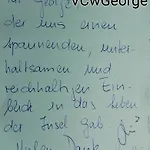 VCWGeorge
für George
der uns einen
spannenden, unter-
haltsamen und
reichhaltigen Ein-
blick in das Leben
der Insel gab
Vielen Dank